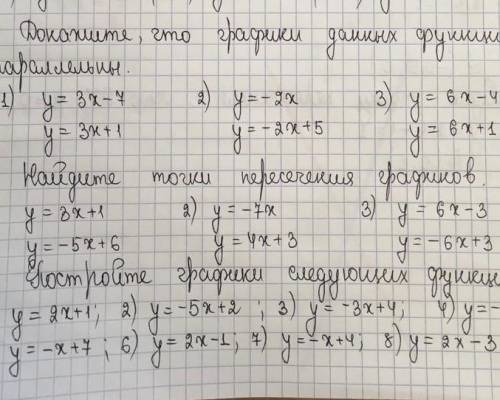 Докажите, что графики данных функций
параллельны.
1) y = 3x-7 2) y = -2x 3) y = 6x-4
y = 3x+1 y = -2x+5 y = 6x+1
Найдите точки пересечения графиков.
y = 3x+1 2) y = -7x 3) y = 6x-3
y = -5x+6 y = 4x+3 y = -6x+3
Постройте графики следующих функций
y = 2x+1; 2) y = -5x+2 ; 3) y = -3x+4; 4) y = -
y = -x+7 ; 6) y = 2x-1; 7) y = -x+4; 8) y = 2x-3